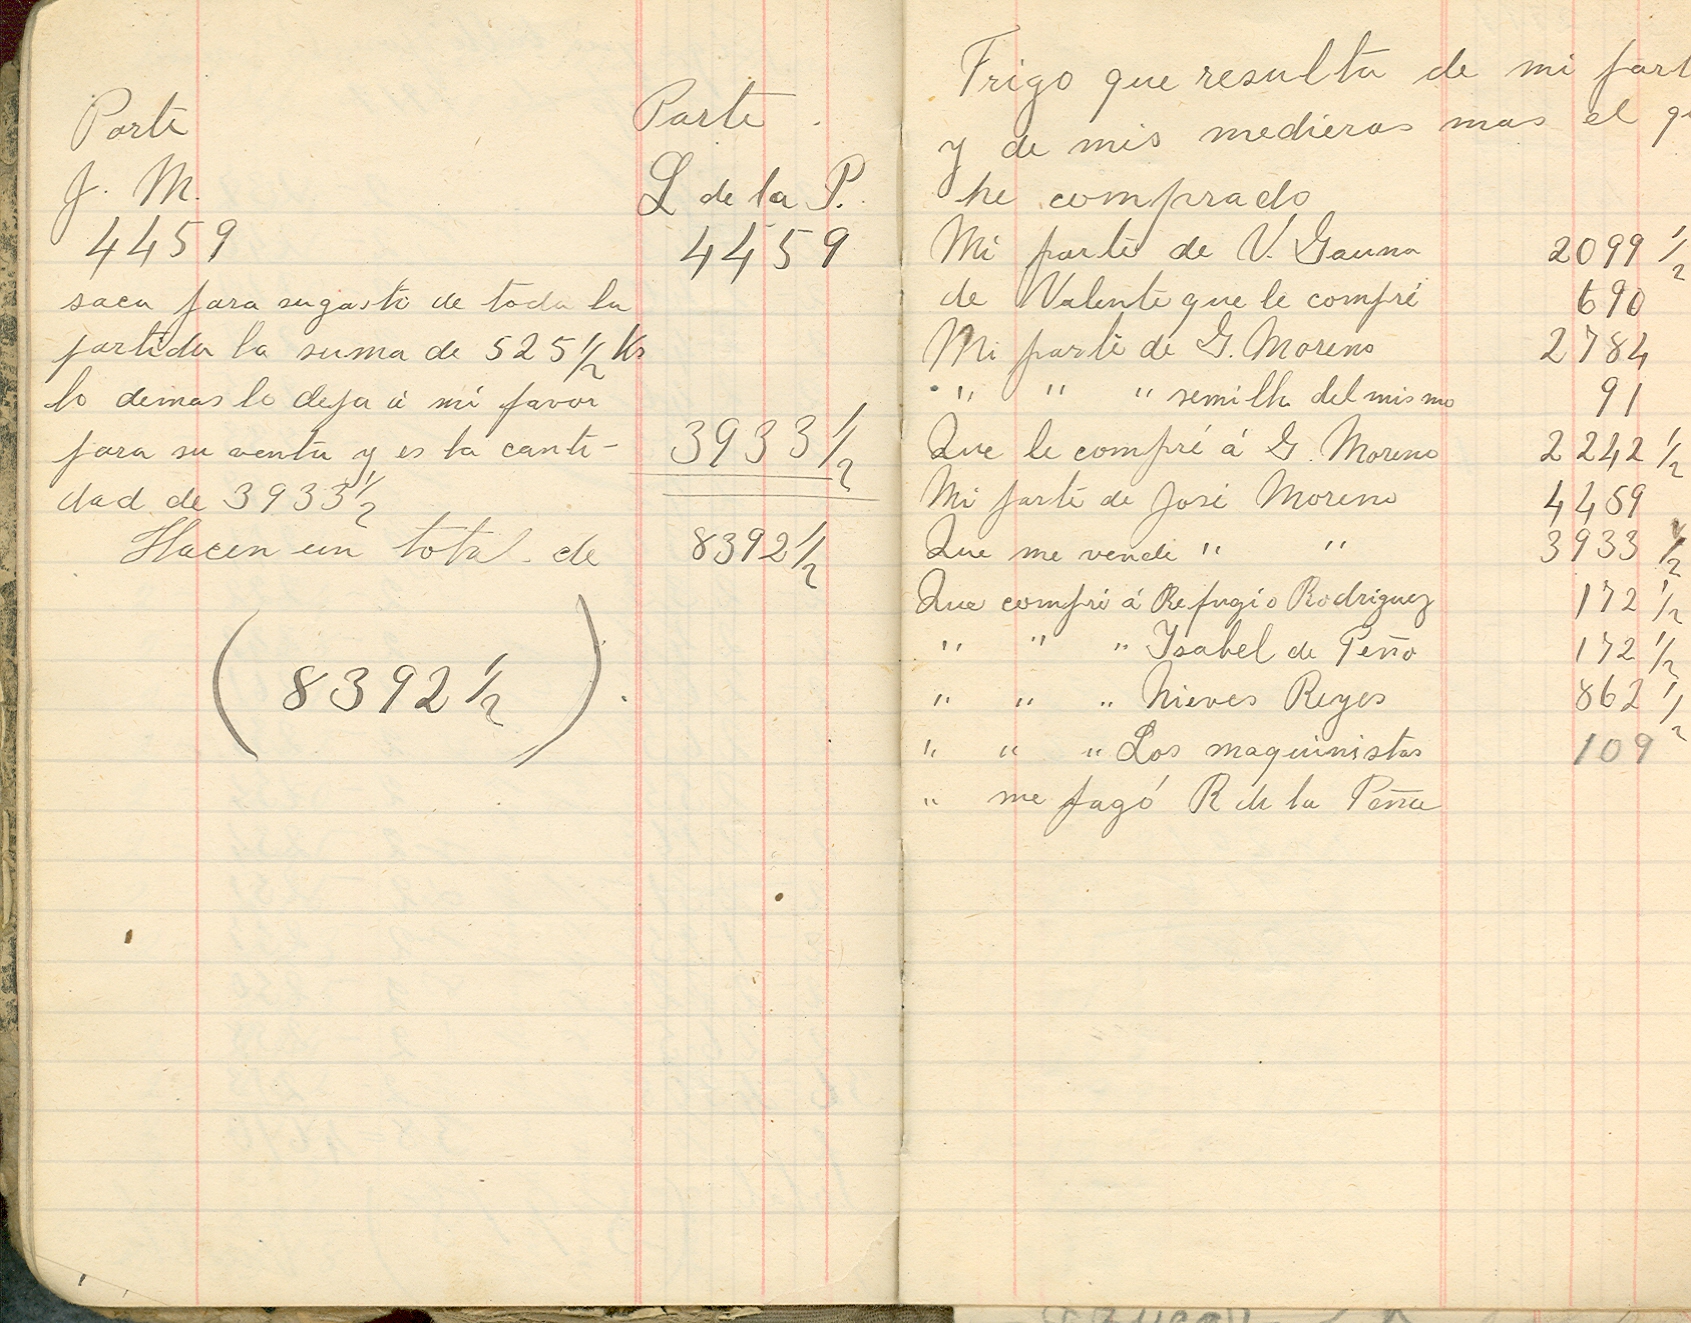 Parte
J. M.
4459
saca para su gasto de toda la
partida la suma de 525 1/2 Ks
lo demas lo deja á mi favor
para su venta y es la canti-
dad de 3933 1/2
Hacen un total de 8392 1/2
(8392 1/2).
Parte.
L de la P.
4459
3933 1/2
Trigo que resulta de mi part
y de mis medieros mas el qu
he comprado
Mi parte de V. Gauna 2099 1/2
de Valente que le compré 690
Mi parte de G. Moreno 2784
" " " semilla del mismo 91
Que le compré á G. Moreno 2242 1/2
Mi parte de José Moreno 4459
Que me vende " " 3933 1/2
Que compré á Refugio Rodriguez 172 1/2
" " " Isabel de Peño 172 1/2
" " " Nieves Reyes 862 1/2
" " " Los maquinistas 109
" me pagó R de la Peña